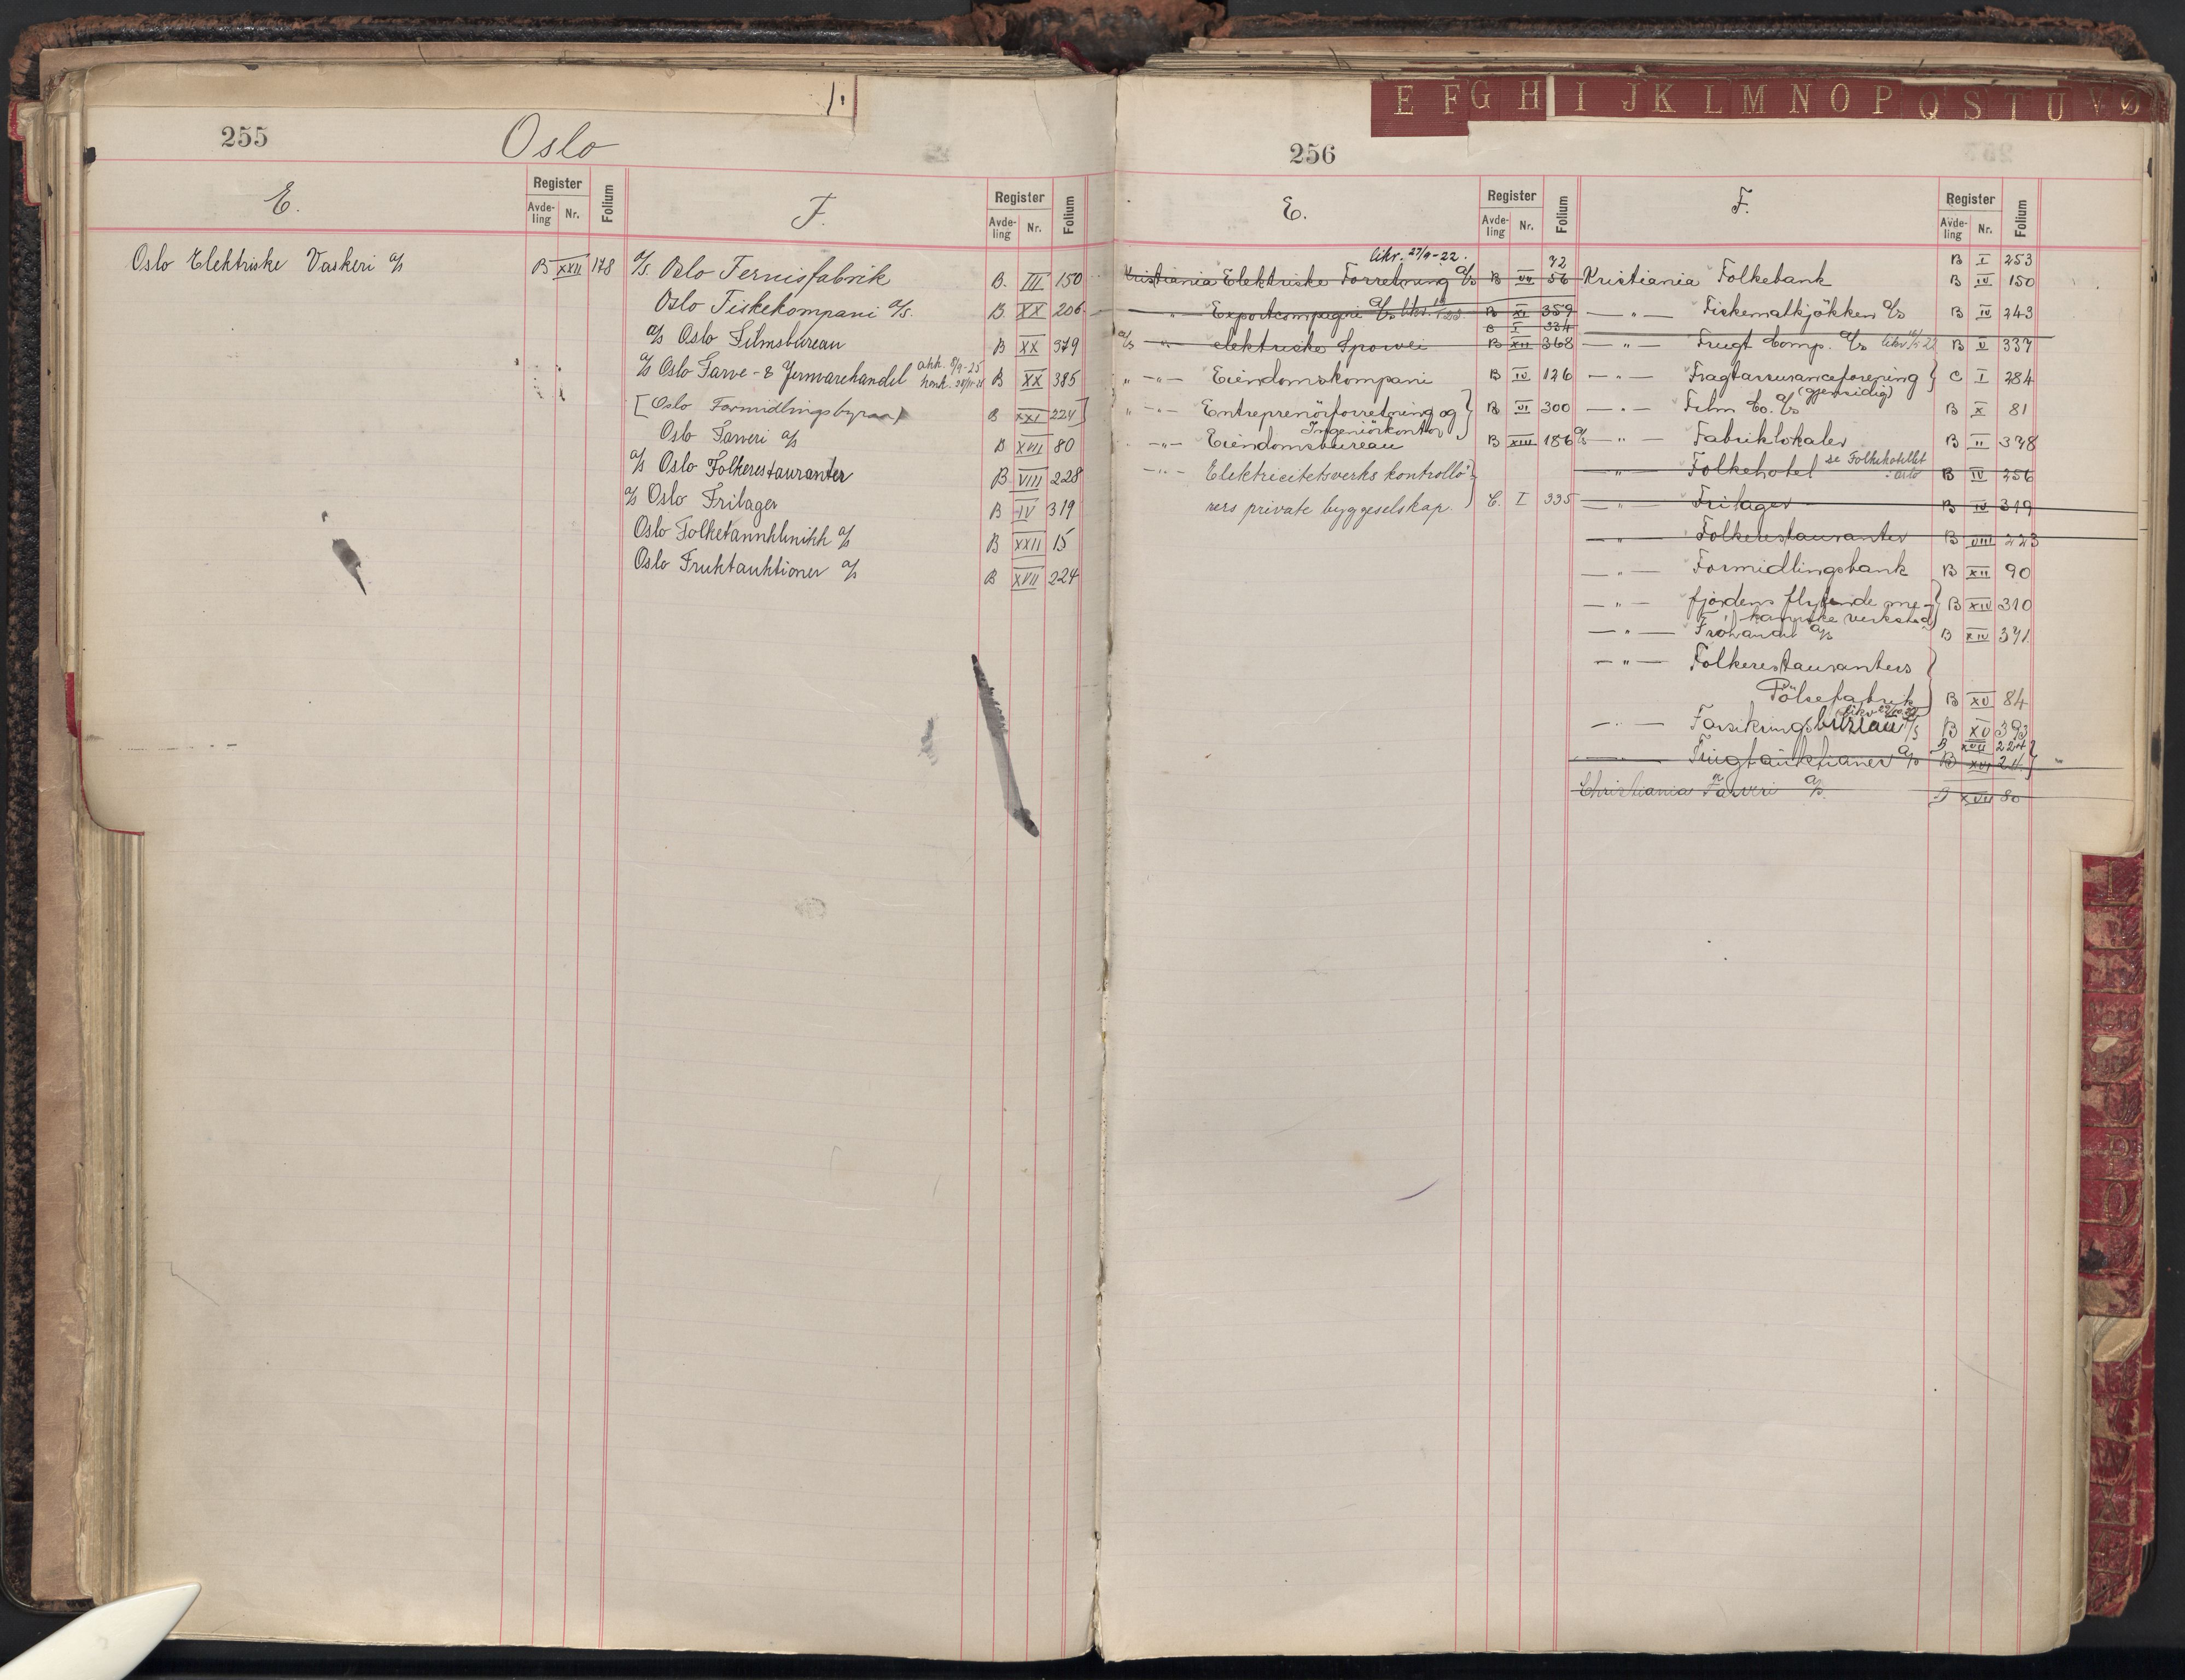 1.
255
Oslo
E.
Register
Avde-ling
Nr.
Folium
F.
Register
Avde-ling
Nr.
Folium
Oslo Elektriske Vaskeri a/s B XXII 178
a/s Oslo Fernisfabrik B. III 150
Oslo Fiskekompani a/s. B. XX 206
a/s Oslo Filmsbureau B XX 379
a/s Oslo Farve- & Jernvarehandel B XX 385
[Oslo Formidlingsbyraa] B XXI 224]
Oslo Farveri a/s B XVII 80
a/s Oslo Folkerestauranter B VIII 228
a/s Oslo Frilager B IV 319
Oslo Folketannklinikk a/s B XXII 15
Oslo Fruktauktioner a/s B XVII 224
E F G H I J K L M N O P Q S T U V Ø
256
E.
Register
Avde-ling
Nr.
Folium
F.
Register
Avde-ling
Nr.
Folium
likv. 27/9-22. 72
Kristiania Elektriske Forretning a/s B VII 56
—"— Exportcompagni a/s B XI 359
B I 334
a/s —"— elektriske Sporvei B XII 368
" —"— Eiendomskompani B IV 126
" —"— Entreprenörforretning og B VI 300
Ingeniörkontor
—"— Eiendomsbureau B XIII 186
—"— Elektricitetsverks kontrollö-
rers private byggeselskap. C. I 335
B I 253
Kristiania Folkebank B IV 150
—"— Fiskematkjökken a/s B IV 243
—"— Frugt Comp. a/s B V 337
—"— Fragtassuranceforening C I 284
(gjensidig)
—"— Film Co. a/s B X 81
a/s —"— Fabriklokaler B II 378
—"— Folkehotel se Folkehotellet B IV 256
Oslo
—"— Frilager B IV 319
—"— Folkerestauranter B VIII 223
—"— Formidlingsbank B XII 90
—"— fjordens flytende me- B XIV 310
kaniske verksted
—"— Fröhandel a/s B XIV 371
—"— Folkerestauranters
Pölsefabrik B XV 84
—"— Forsikringsbureau a/s B XV 393
B XVII 224
—"— Frugtauktioner a/s B XVI 24
Christiania Farveri a/s. B XVII 80